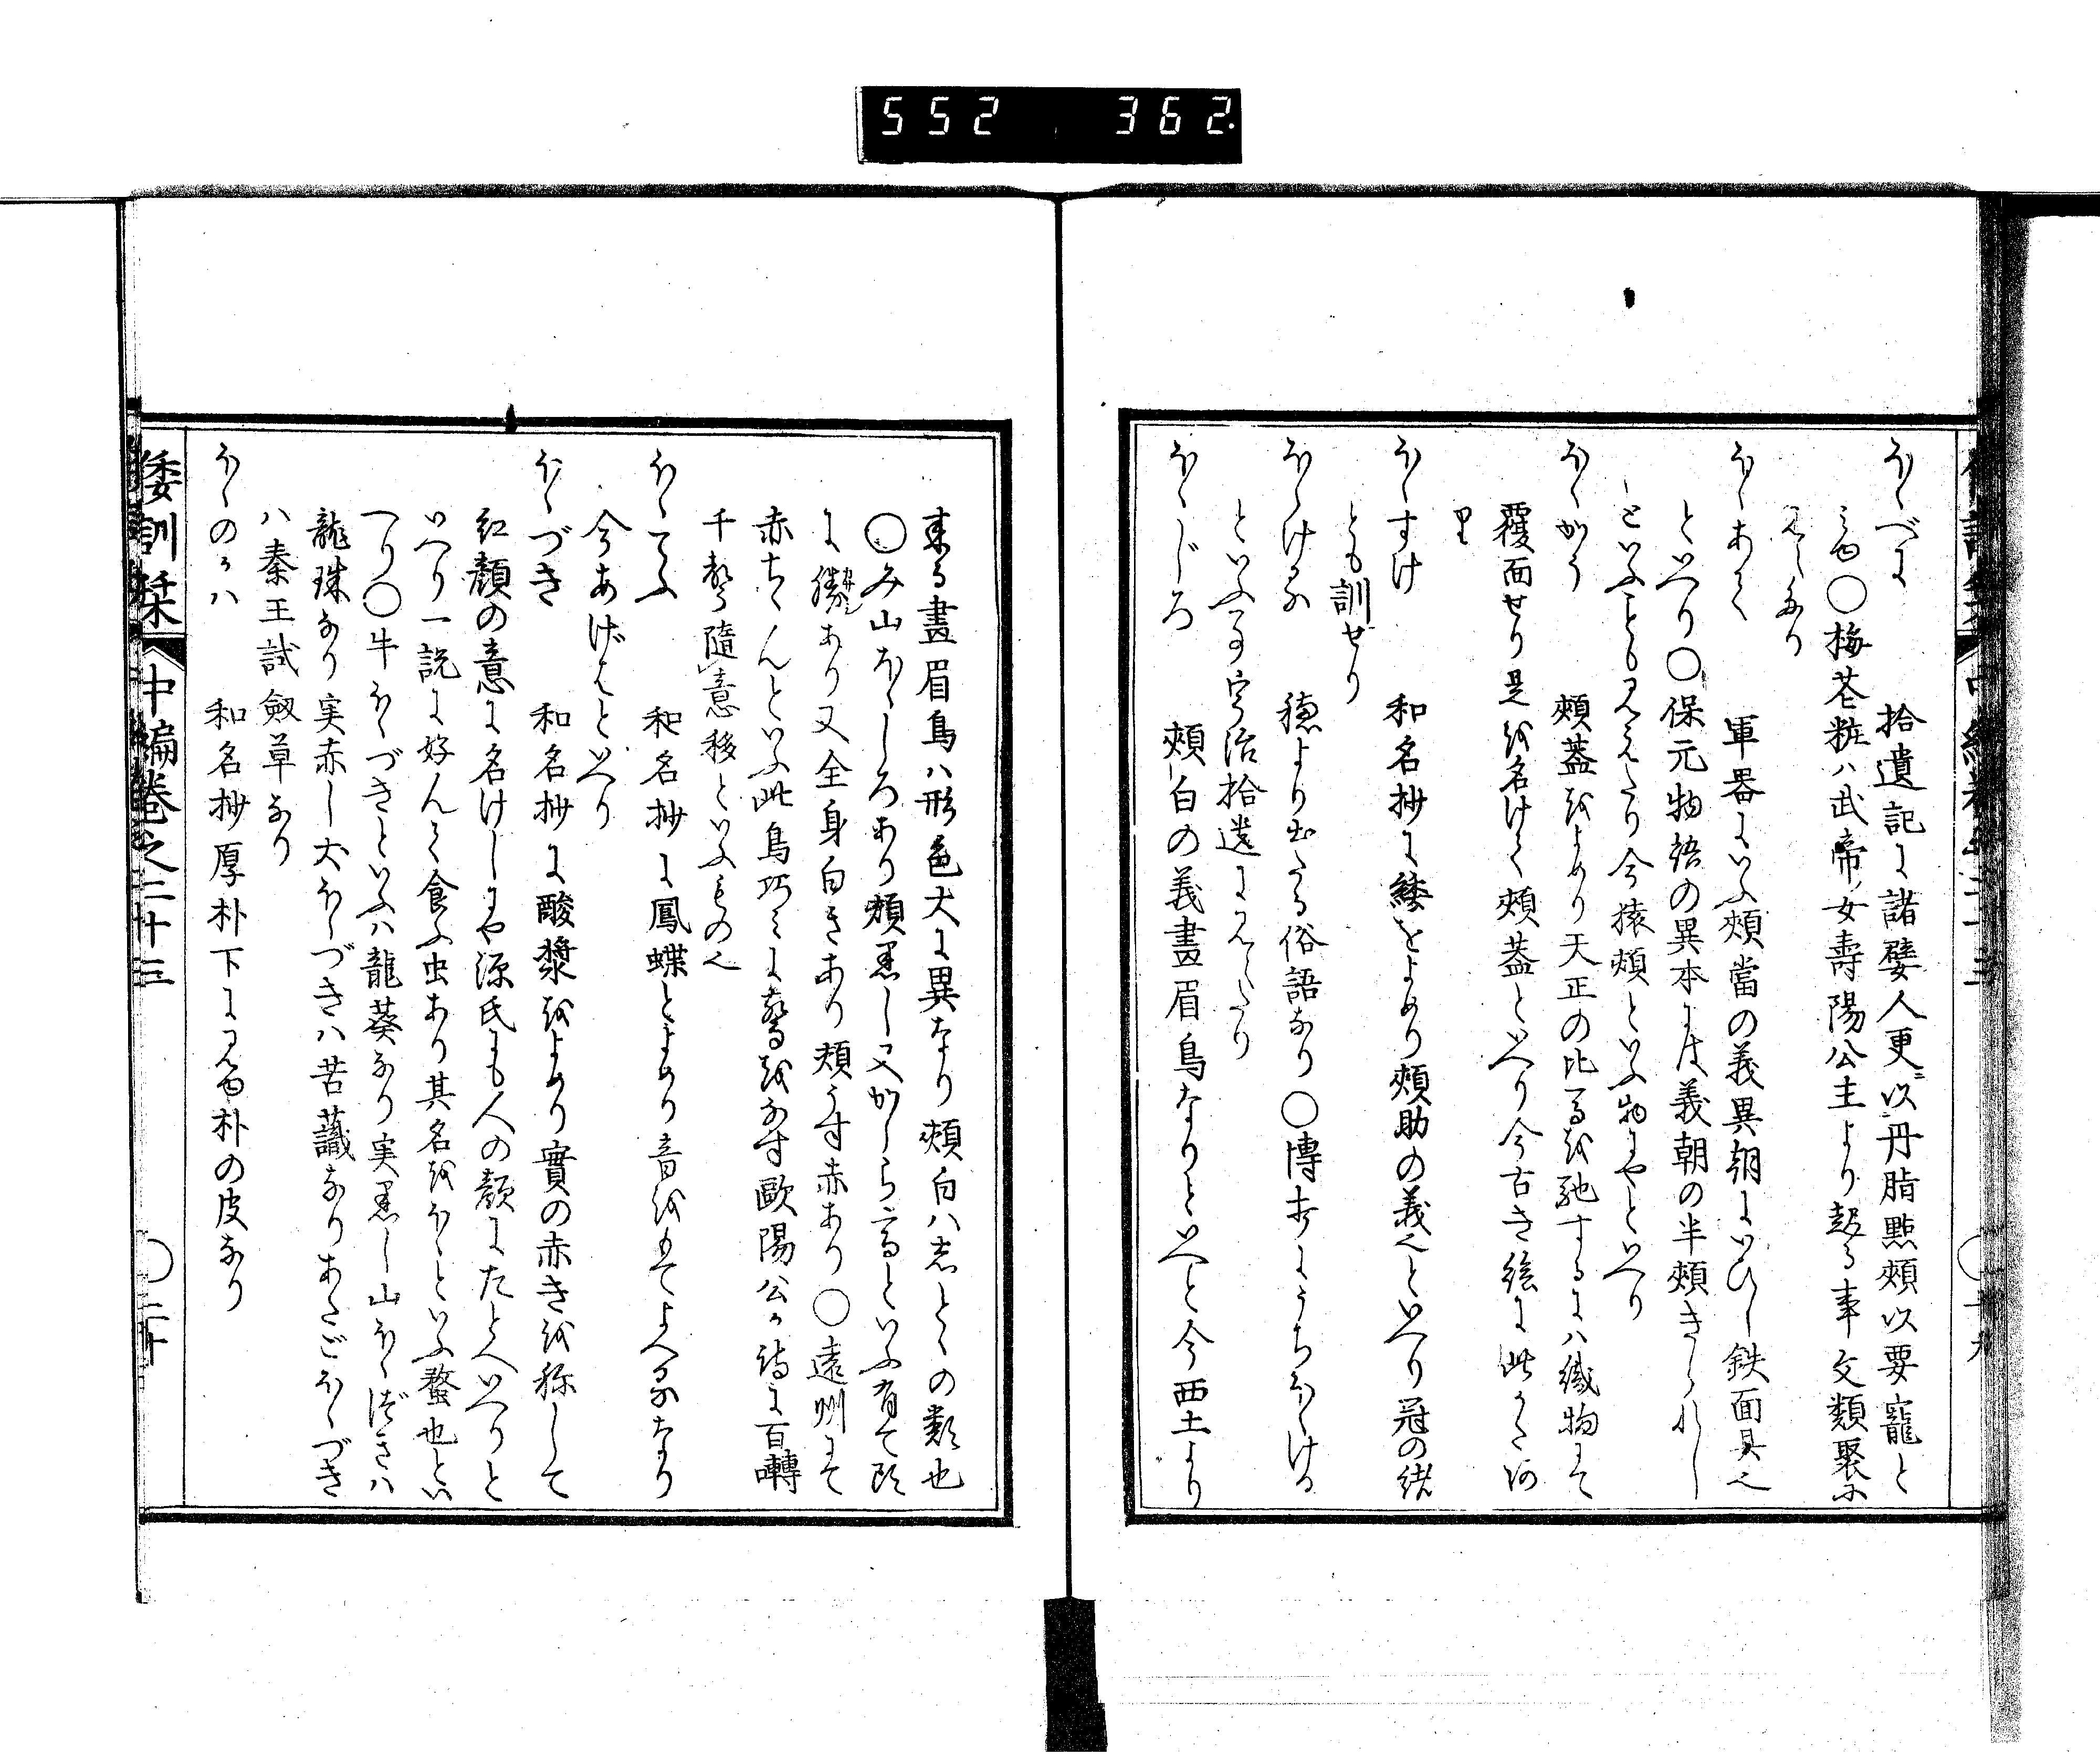 552 362
ほゝべに 拾遺記に諸嬖人更以丹脂點頰以要寵と
みゆ〇梅花粧ハ武帝ノ女壽陽公主より起る事文類聚に
みえたり
ほゝあて 軍器にいふ頰當の義異朝にいひし鉄面具也
といへり〇保元物語の異本には義朝の半頰きられし
といふこともみえたり今猿頰といふ物にやといへり
ほゝかう 頰蓋をよめり天正の比馬を馳するにハ織物にて
覆面せり是を名けて頰蓋といへり今古き繪に此かた
ほゝすけ 和名抄に緌をよめり頰助の義也といへり冠の緒
とも訓せり
ほゝける 穂より出たる俗語なり〇博奕にうちほゝける
といふ事宇治拾遺にみえたり
ほゝじろ 頰白の義畫眉鳥なりといへど今西土より
来る畫眉鳥ハ形色大に異なり頰白ハしとゝの類也
〇み山ほゝじろあり頰黒し又かしら高といふ有て頭
に勝あり又全身白きあり頰うす赤あり〇遠州にて
赤ちんといふ此鳥巧みに聲をなす歐陽公の詩に百囀
千聲隨意移といふもの也
ほゝてふ 和名抄に鳳蝶とよめり音をもてよへるなり
今あげはといへり
ほゝづき 和名抄に酸漿をよめり實の赤きを稱して
紅顏の意に名けしにや源氏にも人の顏にたとへいへりと
いへり一説に好んて食ふ虫あり其名をほゝといふ螯也とい
へり〇牛ほゝづきといふハ龍葵なり実黒し山ほゝづきハ
龍珠なり実赤し犬ほゝづきハ苦蘵なりあたごほゝづき
ハ秦王試劔草なり
ほゝのかハ 和名抄厚朴下にみゆ朴の皮なり
倭訓栞 中編巻之二十三 〇二十